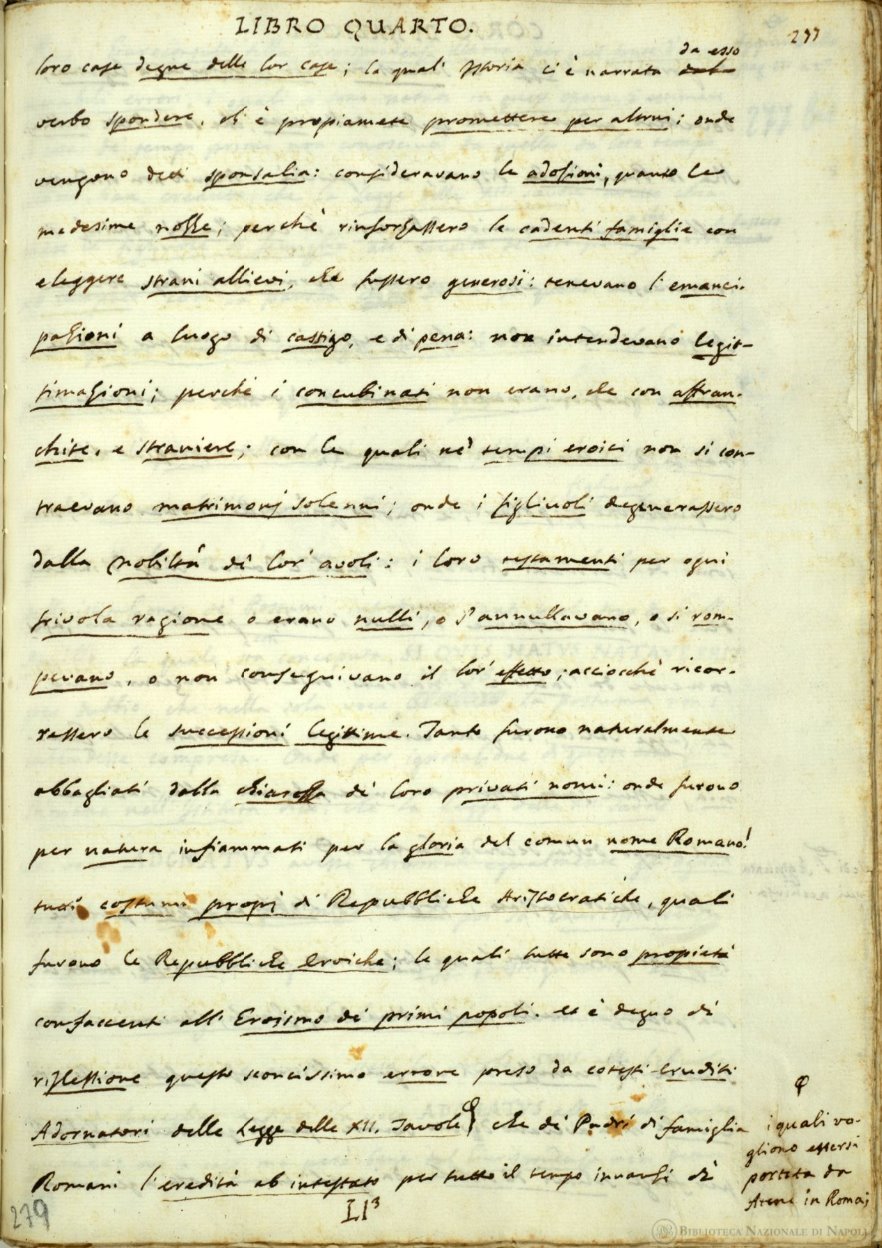 LIBRO QUARTO.
277
loro case degne delle lor case; la qual' Istoria ci è narrata da esso
verbo spondere, ch' è propiamente promettere per altrui; onde
vengono detti sponsalia: consideravano le adozioni, quanto le
medesime nozze; perchè rinforzassero le cadenti famiglie con
eleggere strani allievi, che fussero generosi: tenevano l' emanci-
pazioni a luogo di castigo, e di pena: non intendevano legit-
timazioni; perchè i concubinati non erano, che con affran-
chite, e straniere; con le quali ne' tempi eroici non si con-
traevano matrimonj solenni; onde i figliuoli degenerassero
dalla nobiltà de' lor' avoli: i loro testamenti per ogni
frivola ragione o erano nulli, o s' annullavano, o si rom-
pevano, o non conseguivano il lor' effetto; acciocchè ricor-
ressero le successioni legittime. Tanto furono naturalmente
abbagliati dalla chiarezza de' loro privati nomi: onde furono
per natura infiammati per la gloria del comun nome Romano!
tutti costumi propj di Repubbliche Aristocratiche, quali
furono le Repubbliche Eroiche; le quali tutte sono propietà
confaccenti all' Eroismo de' primi popoli. et è degno di
riflessione questo sconcissimo errore preso da cotesti Eruditi
Adornatori della Legge delle XII. Tavole che de' Padri di famiglia
i quali vo-
gliono essersi
portata da
Atene in Roma;
Romani l' eredità ab intestato per tutto il tempo innanzi di
Ll³
279
BIBLIOTECA NAZIONALE DI NAPOLI